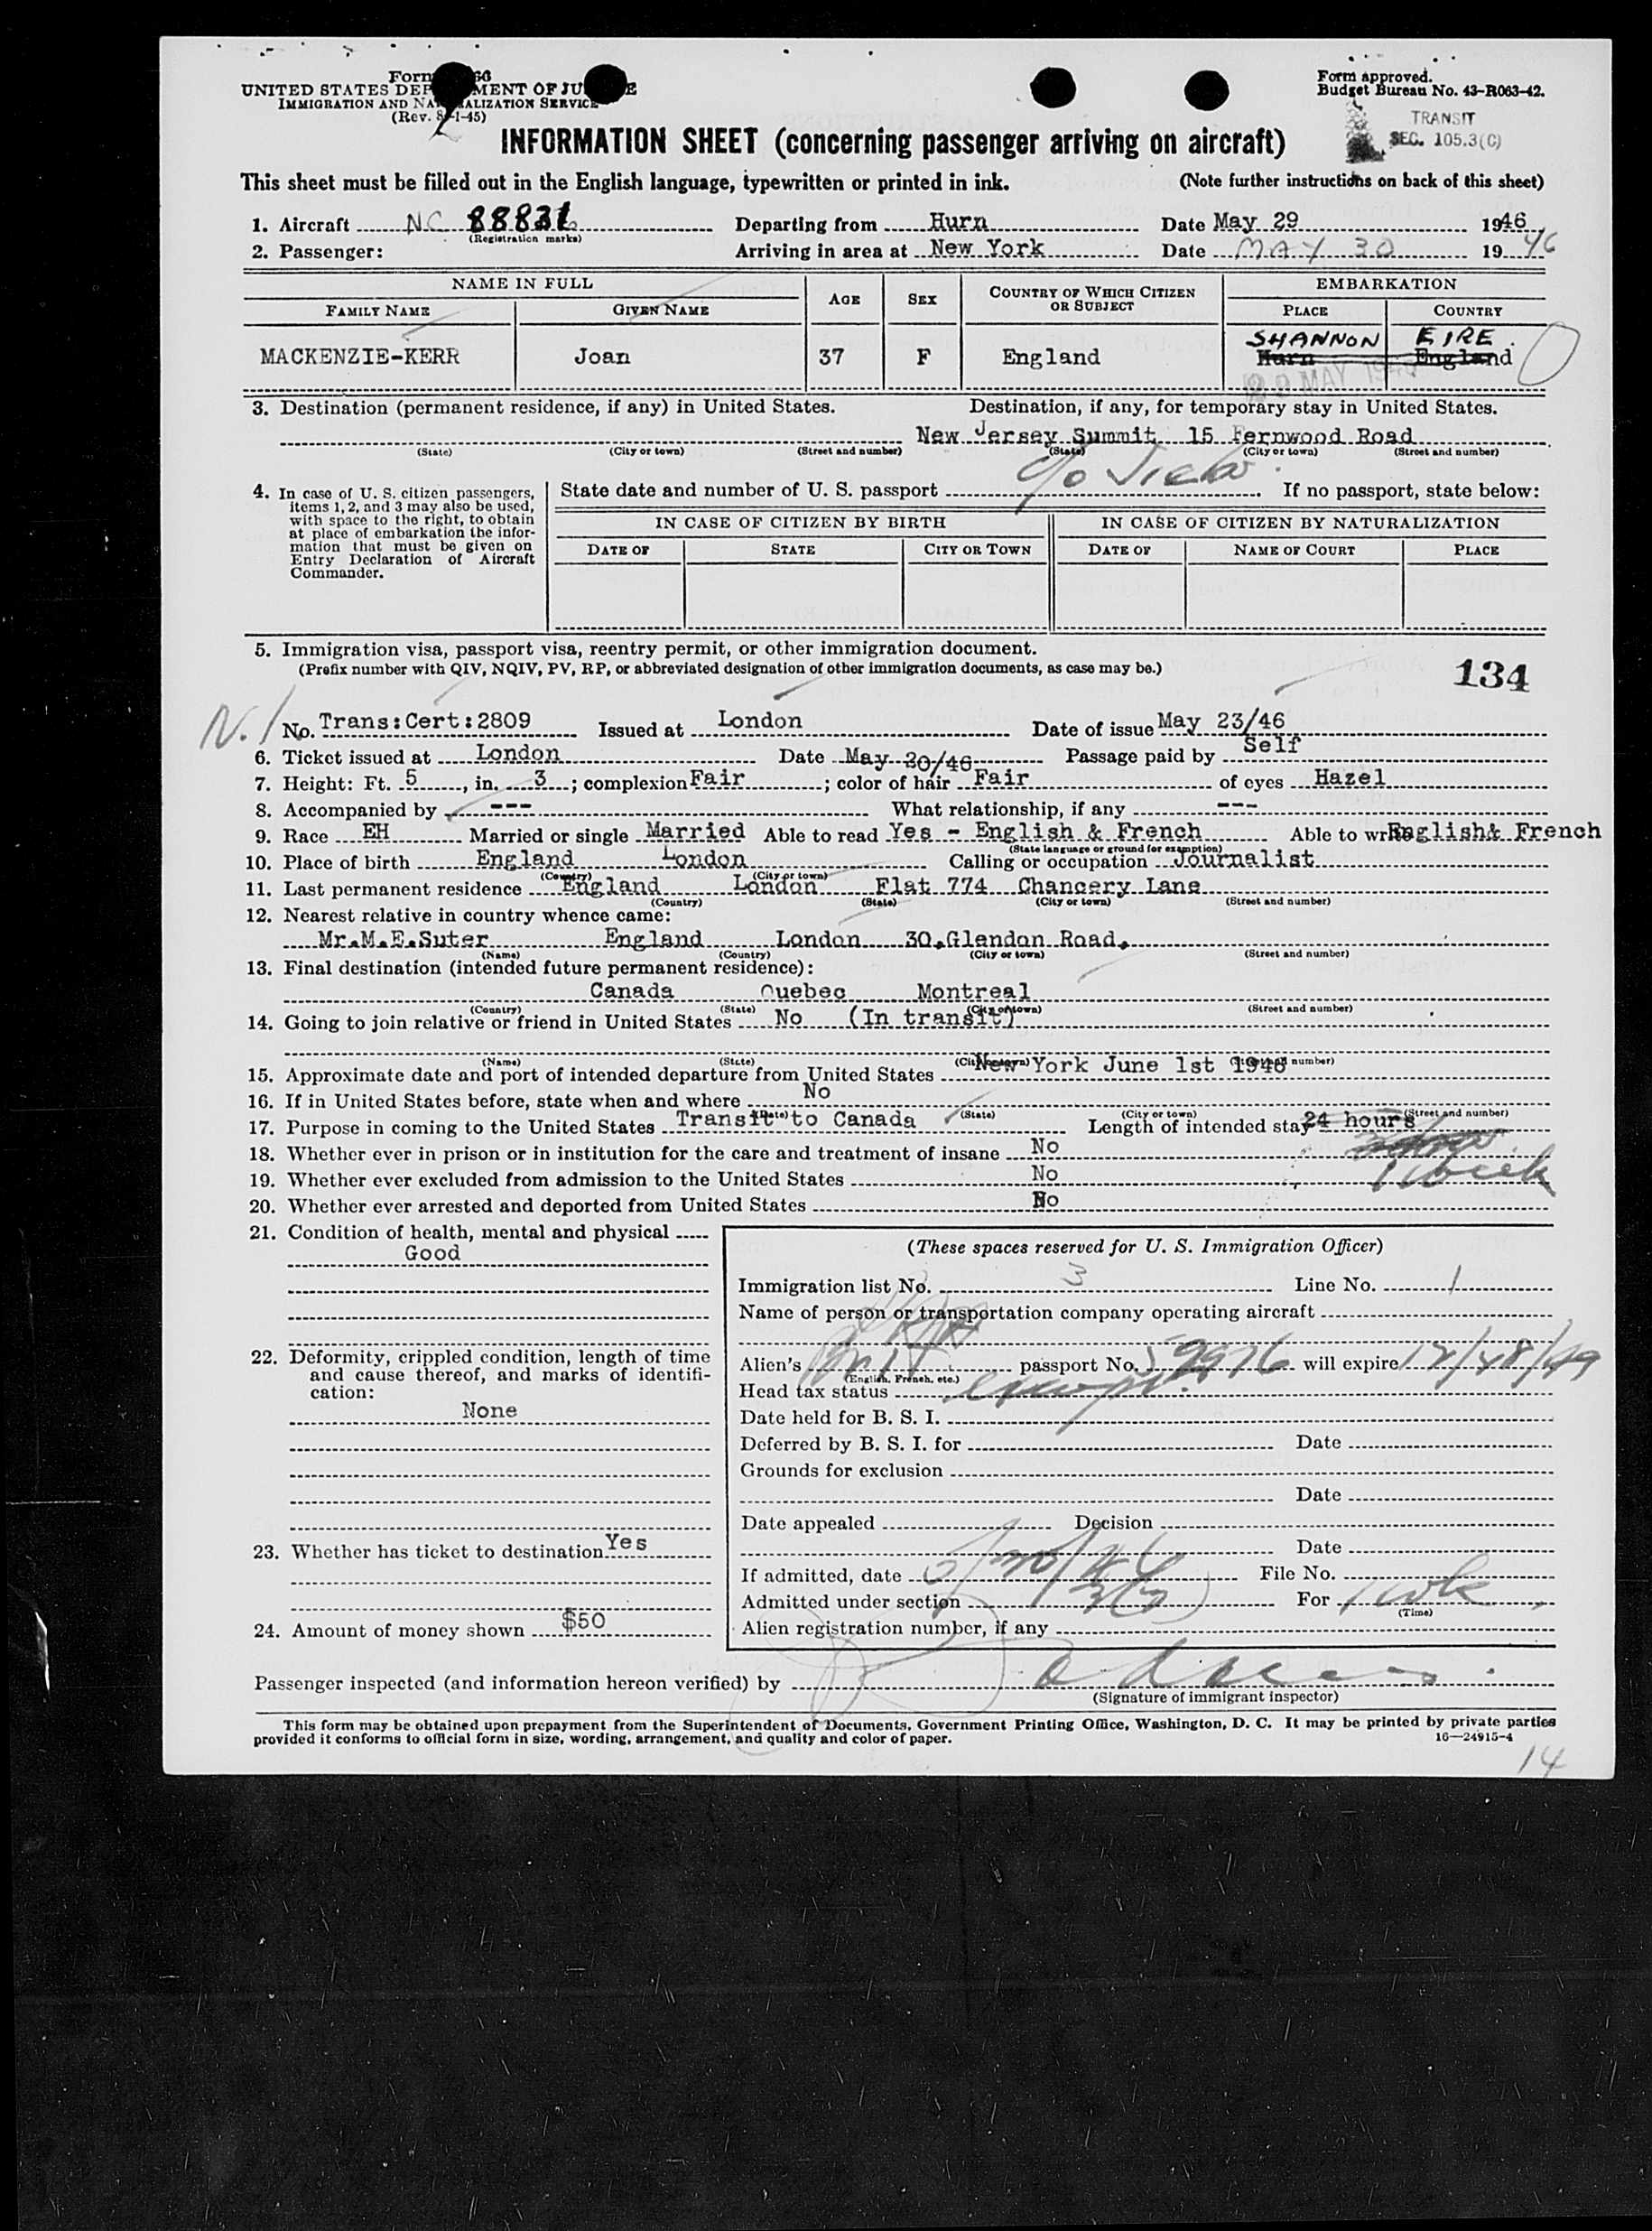 Form
UNITED STATES DEPARTMENT OF JUSTICE
IMMIGRATION AND NATURALIZATION SERVICE
(Rev. 8-1-45)
Form approved.
Budget Bureau No. 43-R063-42.
TRANSIT
SEC. 105.3(C)
INFORMATION SHEET (concerning passenger arriving on aircraft)
This sheet must be filled out in the English language, typewritten or printed in ink. (Note further instructions on back of this sheet)
1. Aircraft NC 8883 Departing from Hurn Date May 29 1946
(Registration marks)
2. Passenger: Arriving in area at New York Date MAY 30 1946
NAME IN FULL AGE SEX COUNTRY OF WHICH CITIZEN OR SUBJECT EMBARKATION
FAMILY NAME GIVEN NAME PLACE COUNTRY
SHANNON EIRE
MACKENZIE-KERR Joan 37 F England Hurn England
3. Destination (permanent residence, if any) in United States. Destination, if any, for temporary stay in United States.
New Jersey Summit 15 Fernwood Road
(State) (City or town) (Street and number) (State) (City or town) (Street and number)
c/o
4. In case of U. S. citizen passengers, items 1, 2, and 3 may also be used, with space to the right, to obtain at place of embarkation the information that must be given on Entry Declaration of Aircraft Commander.
State date and number of U. S. passport If no passport, state below:
IN CASE OF CITIZEN BY BIRTH IN CASE OF CITIZEN BY NATURALIZATION
DATE OF STATE CITY OR TOWN DATE OF NAME OF COURT PLACE
5. Immigration visa, passport visa, reentry permit, or other immigration document.
(Prefix number with QIV, NQIV, PV, RP, or abbreviated designation of other immigration documents, as case may be.)
134
No. Trans:Cert:2809 Issued at London Date of issue May 23/46
6. Ticket issued at London Date May 20/46 Passage paid by Self
7. Height: Ft. 5, in. 3; complexion Fair; color of hair Fair of eyes Hazel
8. Accompanied by --- What relationship, if any ---
9. Race EH Married or single Married Able to read Yes - English & French Able to write English& French
(State language or ground for exemption)
10. Place of birth England London Calling or occupation Journalist
(Country) (City or town)
11. Last permanent residence England London Flat 774 Chancery Lane
(Country) (State) (City or town) (Street and number)
12. Nearest relative in country whence came:
Mr.M.E.Suter England London 30,Glendon Road,
(Name) (Country) (City or town) (Street and number)
13. Final destination (intended future permanent residence):
Canada Quebec Montreal
(Country) (State) (City or town) (Street and number)
14. Going to join relative or friend in United States No (In transit)
(Name) (State) (City or town) (Street and number)
15. Approximate date and port of intended departure from United States New York June 1st 1946
16. If in United States before, state when and where No
(Date) (State) (City or town) (Street and number)
17. Purpose in coming to the United States Transit to Canada Length of intended stay 24 hours
18. Whether ever in prison or in institution for the care and treatment of insane No
1 week
19. Whether ever excluded from admission to the United States No
20. Whether ever arrested and deported from United States No
21. Condition of health, mental and physical
Good
22. Deformity, crippled condition, length of time and cause thereof, and marks of identification:
None
23. Whether has ticket to destination Yes
24. Amount of money shown $50
(These spaces reserved for U. S. Immigration Officer)
Immigration list No. 3 Line No. 1
Name of person or transportation company operating aircraft
Alien's Brit passport No. will expire
(English, French, etc.)
Head tax status exempt
Date held for B. S. I.
Deferred by B. S. I. for Date
Grounds for exclusion
Date
Date appealed Decision
Date
If admitted, date 5/30/46 File No.
Admitted under section 3(3) For 1 wk
(Time)
Alien registration number, if any
Passenger inspected (and information hereon verified) by
(Signature of immigrant inspector)
This form may be obtained upon prepayment from the Superintendent of Documents, Government Printing Office, Washington, D. C. It may be printed by private parties
provided it conforms to official form in size, wording, arrangement, and quality and color of paper. 16—24915-4
14